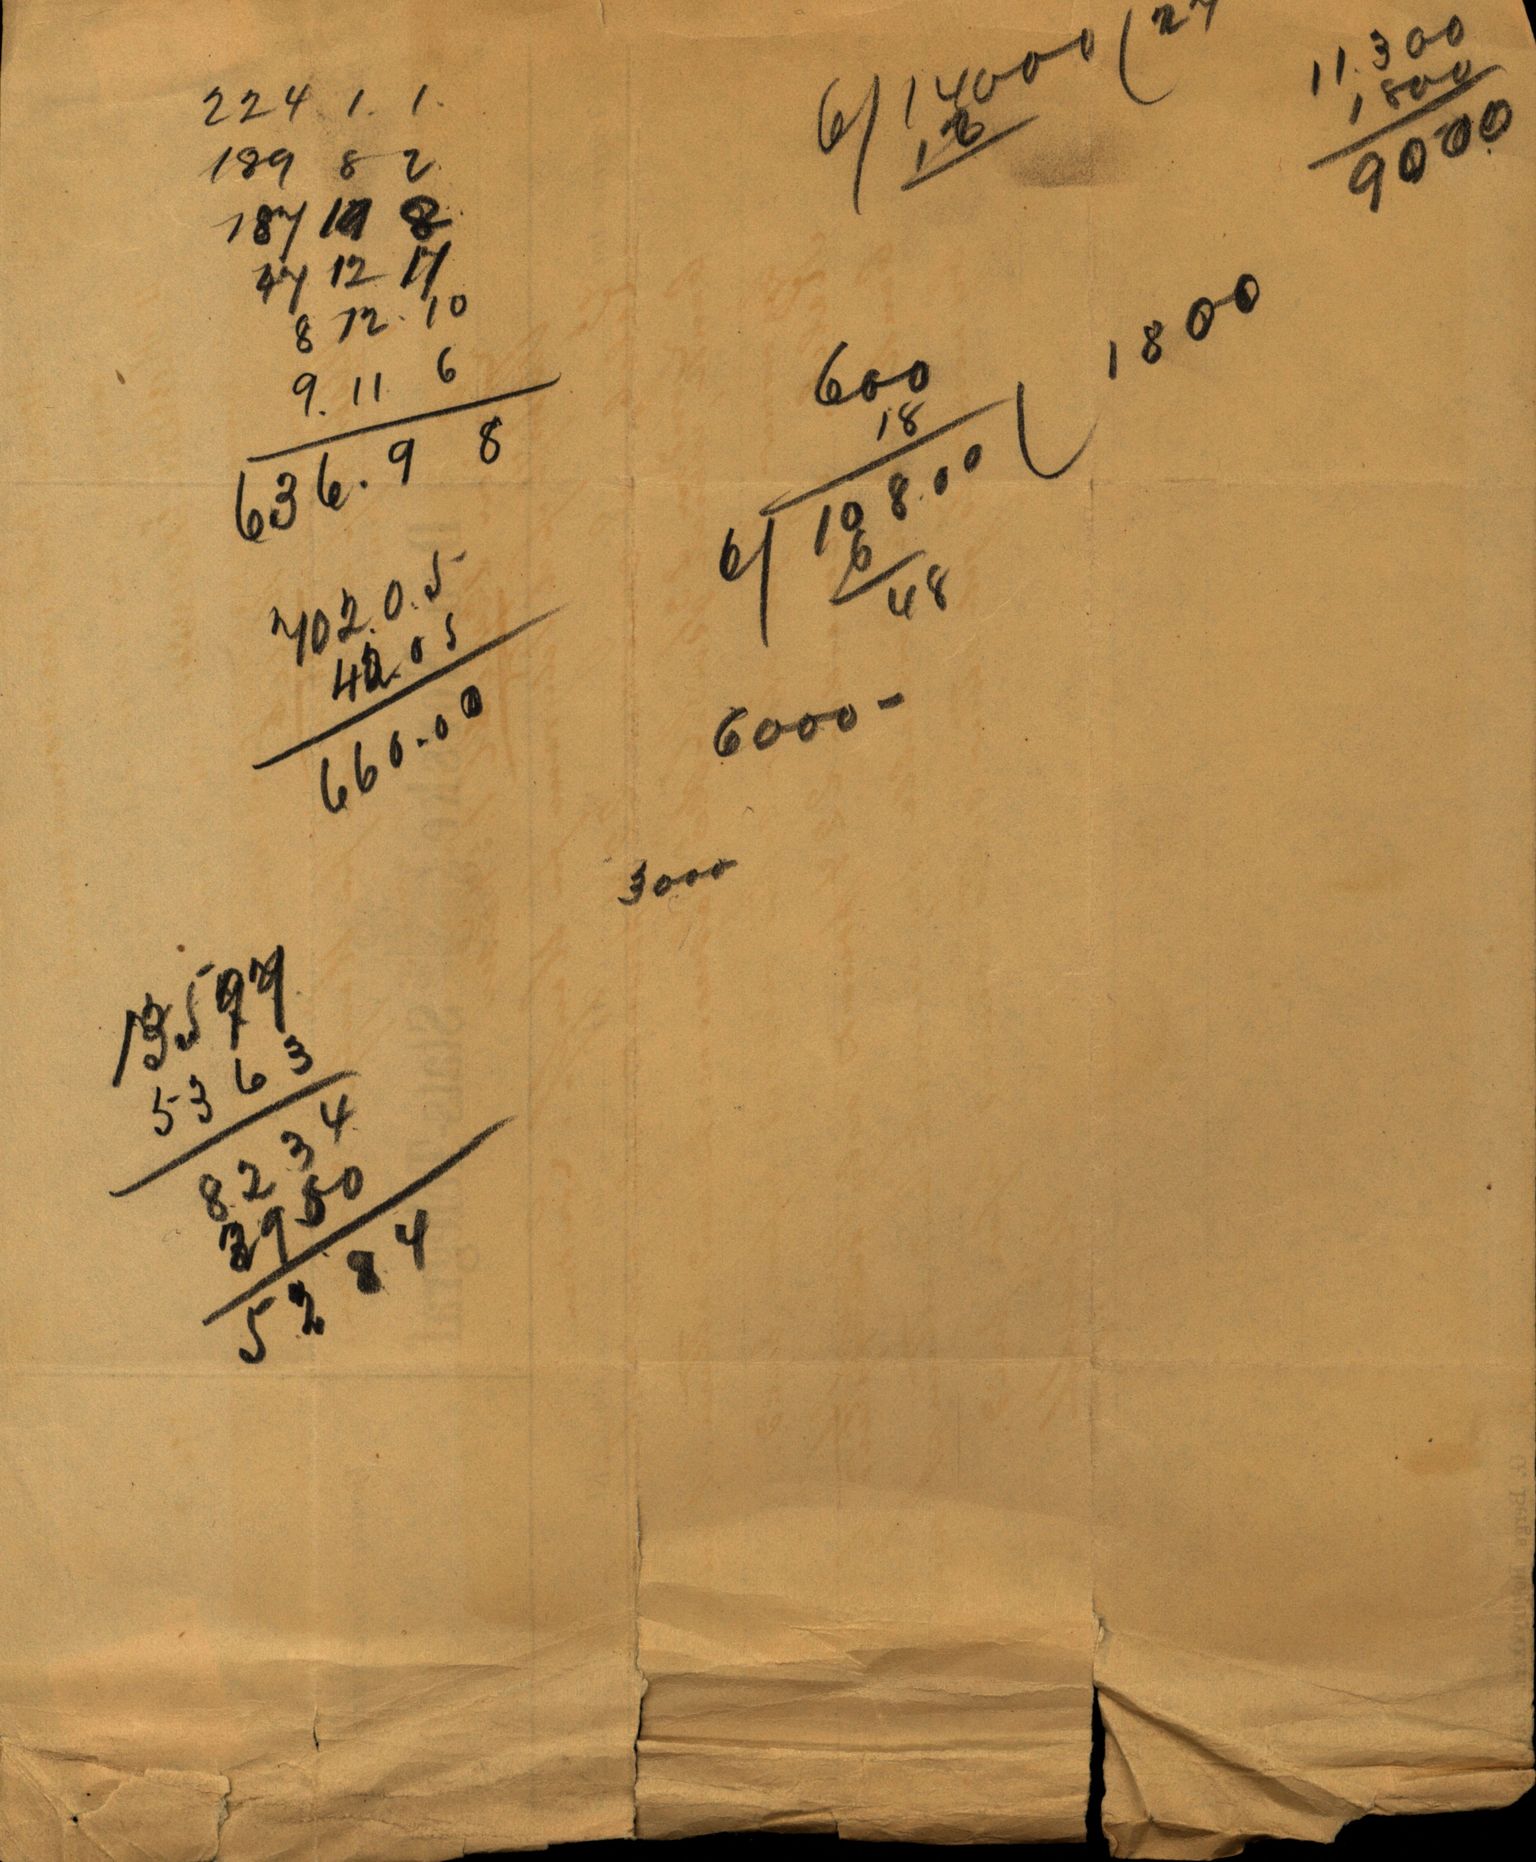 224 1. 1.
189 8 2
187 19 8
47 12 17
8 12. 10
9. 11 6
636. 9 8
702.0.5
42.05
660.00
13597
5363
8234
2950
5284
6) 14000 ( 27
12
11.300
1800
9000
600
18
6) 108.00 ( 1800
6
48
6000-
3000